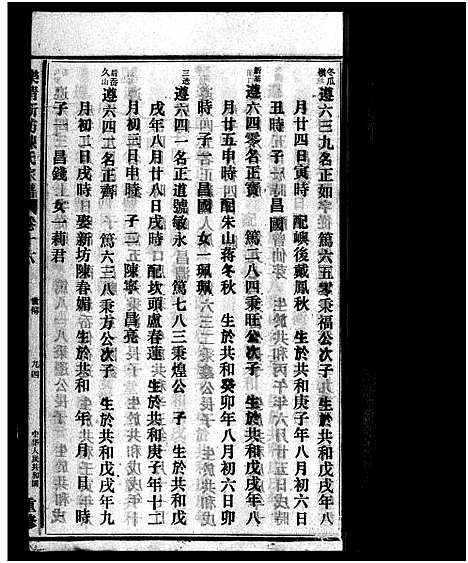 冬瓜
遵六三九名正如 篤六五零秉福公次子 生於共和戊戌年八
月廿四日寅時 配嶼後戴鳳秋 生於共和庚子年八月初六日
丑時 子一 昌國
新基
遵六四零名正寶 篤二八四秉旺公次子 生於共和戊戌年八
月廿五申時 配朱山蔣冬秋 生於共和癸卯年八月初六日卯
時 子一 昌國 女一珮珮
三透
遵六四一名正道號敏永 篤七八三秉煌公 子 生於共和戊
戌年八月廿八日戌時 配坎頭盧春蓮 生於共和庚子年十二
月初三日申時 子二 陳寧 昌亮
后岙
久山
遵六四二名正齊 篤六三八秉方公次子 生於共和戊戌年九
月初二日戌時 娶新坊陳春媚 生於共和 年 月 日 時
子一 昌錢 女一莉君
樂清新坊陳氏宗譜 卷十六
世傳
九四
中华人民共和国
重修